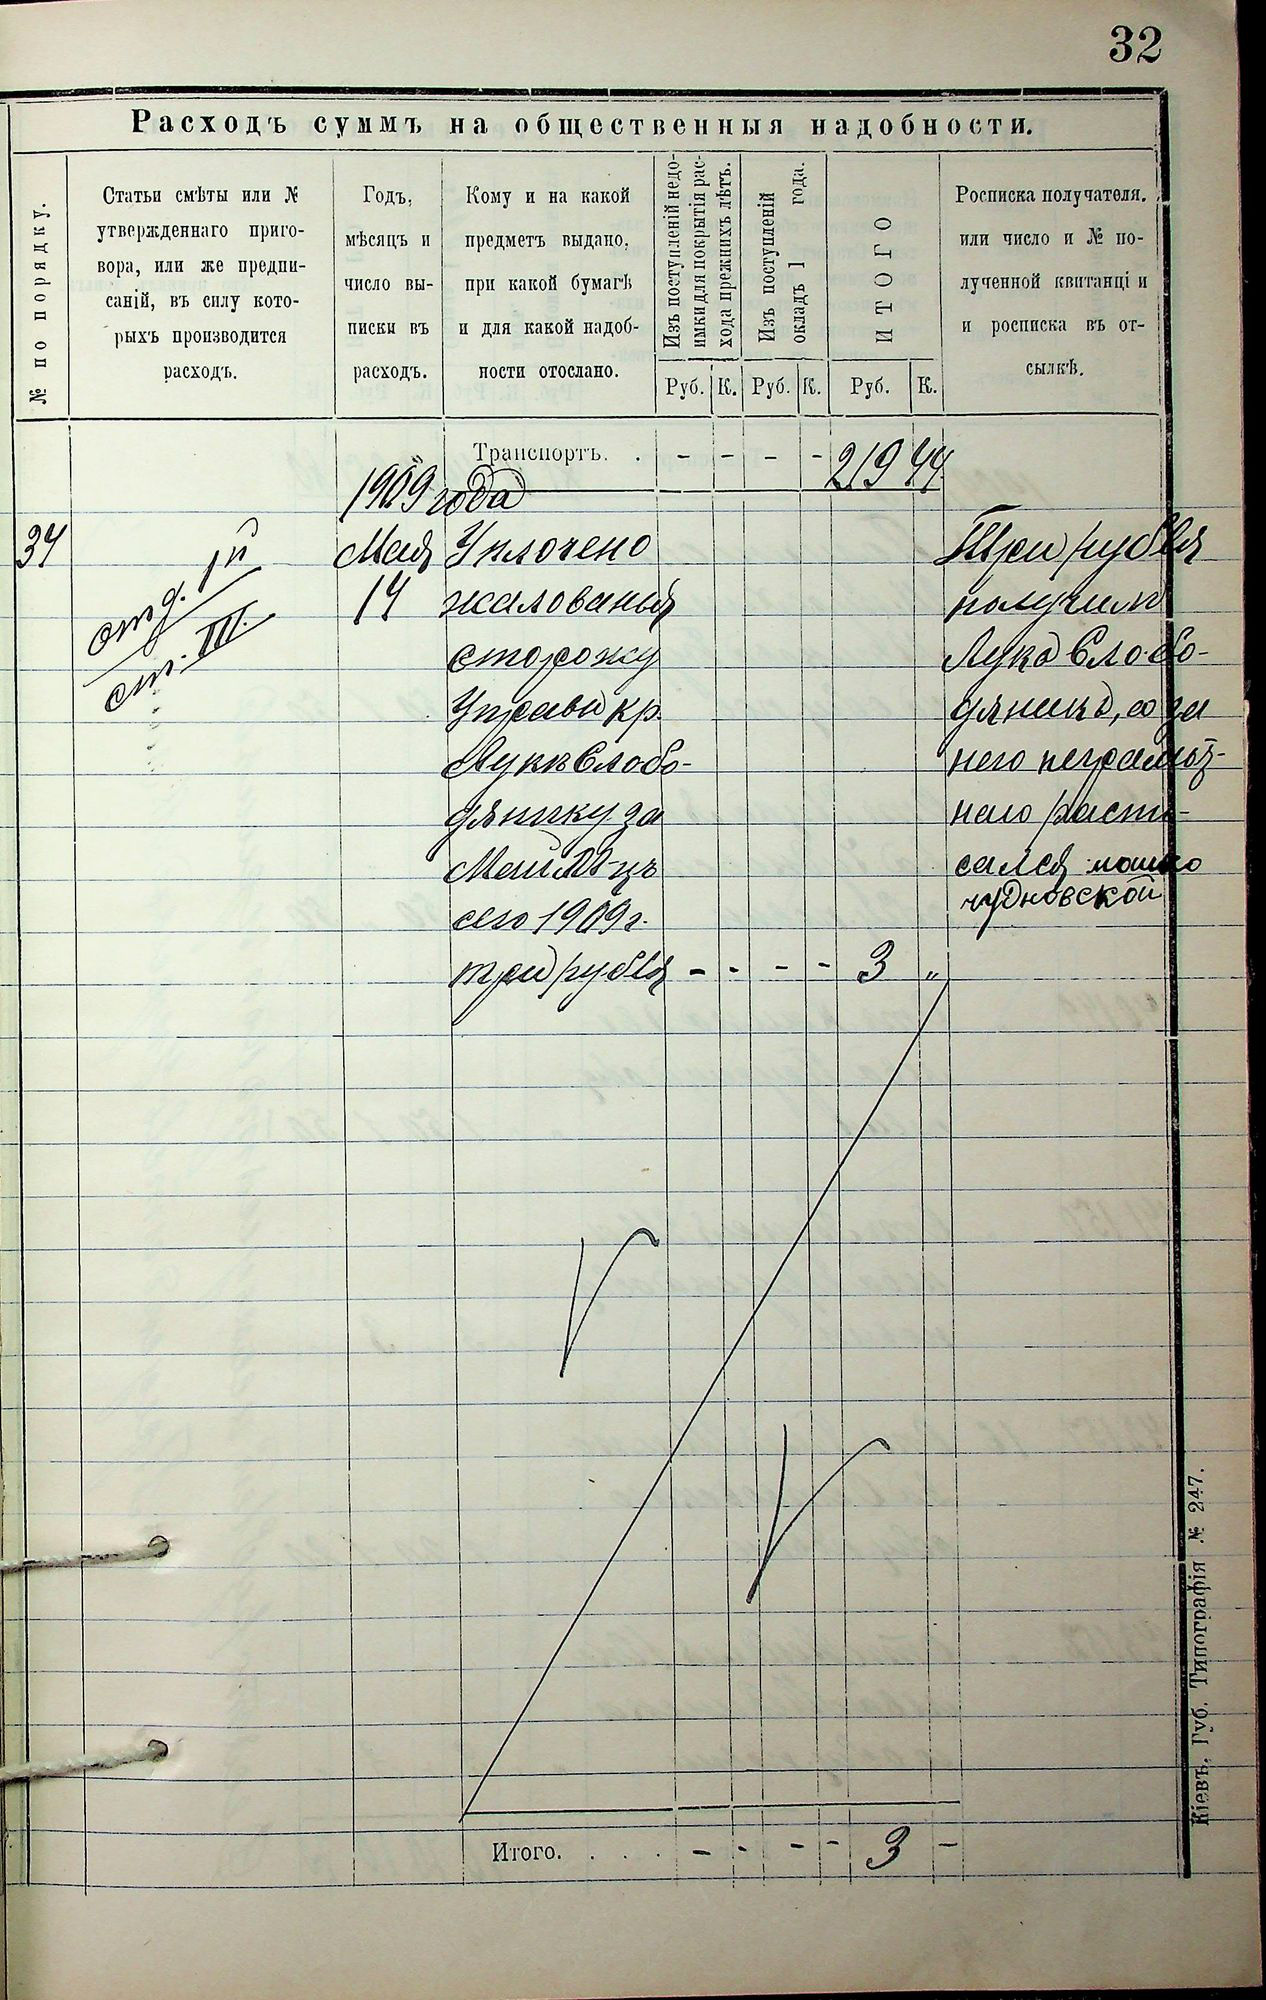 32
Расходъ суммъ на общественныя надобности.
№ по порядку.
Статьи смѣты или №
утвержденнаго приго-
вора, или же предпи-
саній, въ силу кото-
рыхъ производится
расходъ.
Годъ,
мѣсяцъ и
число вы-
писки въ
расходъ.
Кому и на какой
предметъ выдано,
при какой бумагѣ
и для какой надоб-
ности отослано.
Изъ поступленій недо-
имки для покрытія рас-
хода прежнихъ лѣтъ.
Руб. К.
Изъ поступленій
окладъ 1 года.
Руб. К.
ИТОГО
Руб. К.
Росписка получателя,
или число и № по-
лученной квитанціи
и росписка въ от-
сылкѣ.
Транспортъ. . - - - - 219 44
1909 года
34
отд. 1й
ст. III.
Мая
14
Уплочено
жалованья
сторожу
Управы кр.
Лукѣ Слобо-
дянику за
Май М-цъ
сего 1909 г.
три рубля - - - - 3 „
Три рубля
получилъ
Лука Слобо-
дяникъ, а за
него неграмот-
наго распи-
сался мошко
чудновской
Итого. . . . - - - - 3 -
Кіевъ. Губ. Типографія № 247.